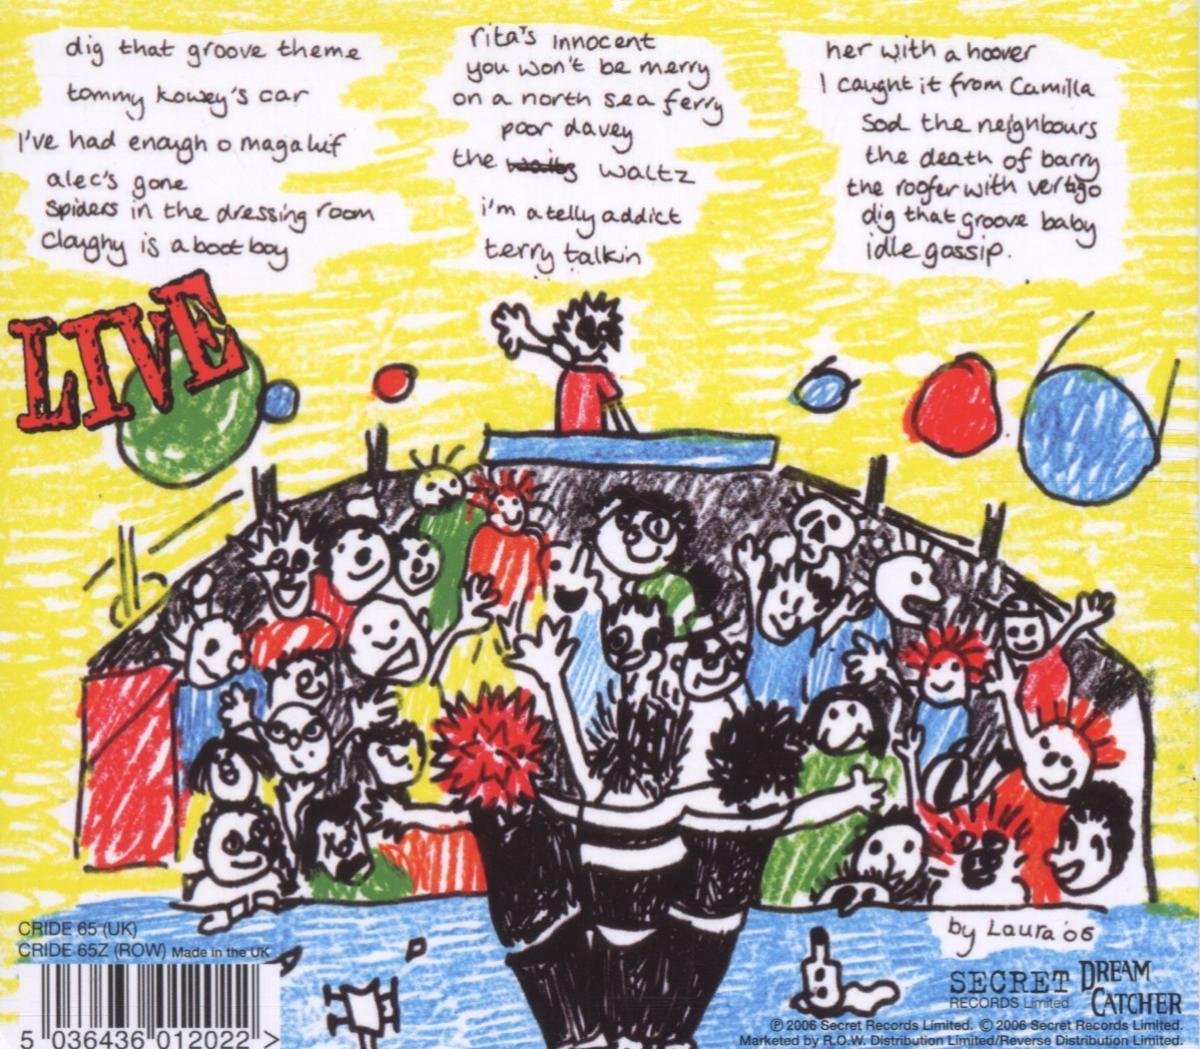 dig that groove theme
tommy kowey's car
I've had enough o magaluf
alec's gone
Spiders in the dressing room
Claughy is a boot boy
rita's innocent
you won't be merry
on a north sea ferry
poor davey
the waltz
i'm a telly addict
terry talkin
her with a hoover
I caught it from Camilla
Sod the neighbours
the death of barry
the roofer with vertigo
dig that groove baby
idle gossip.
LIVE
CRIDE 65 (UK)
CRIDE 65Z (ROW) Made in the UK
5 036436 012022 >
by Laura '06
SECRET
RECORDS Limited
DREAM
CATCHER
℗ 2006 Secret Records Limited. © 2006 Secret Records Limited.
Marketed by R.O.W. Distribution Limited/Reverse Distribution Limited.